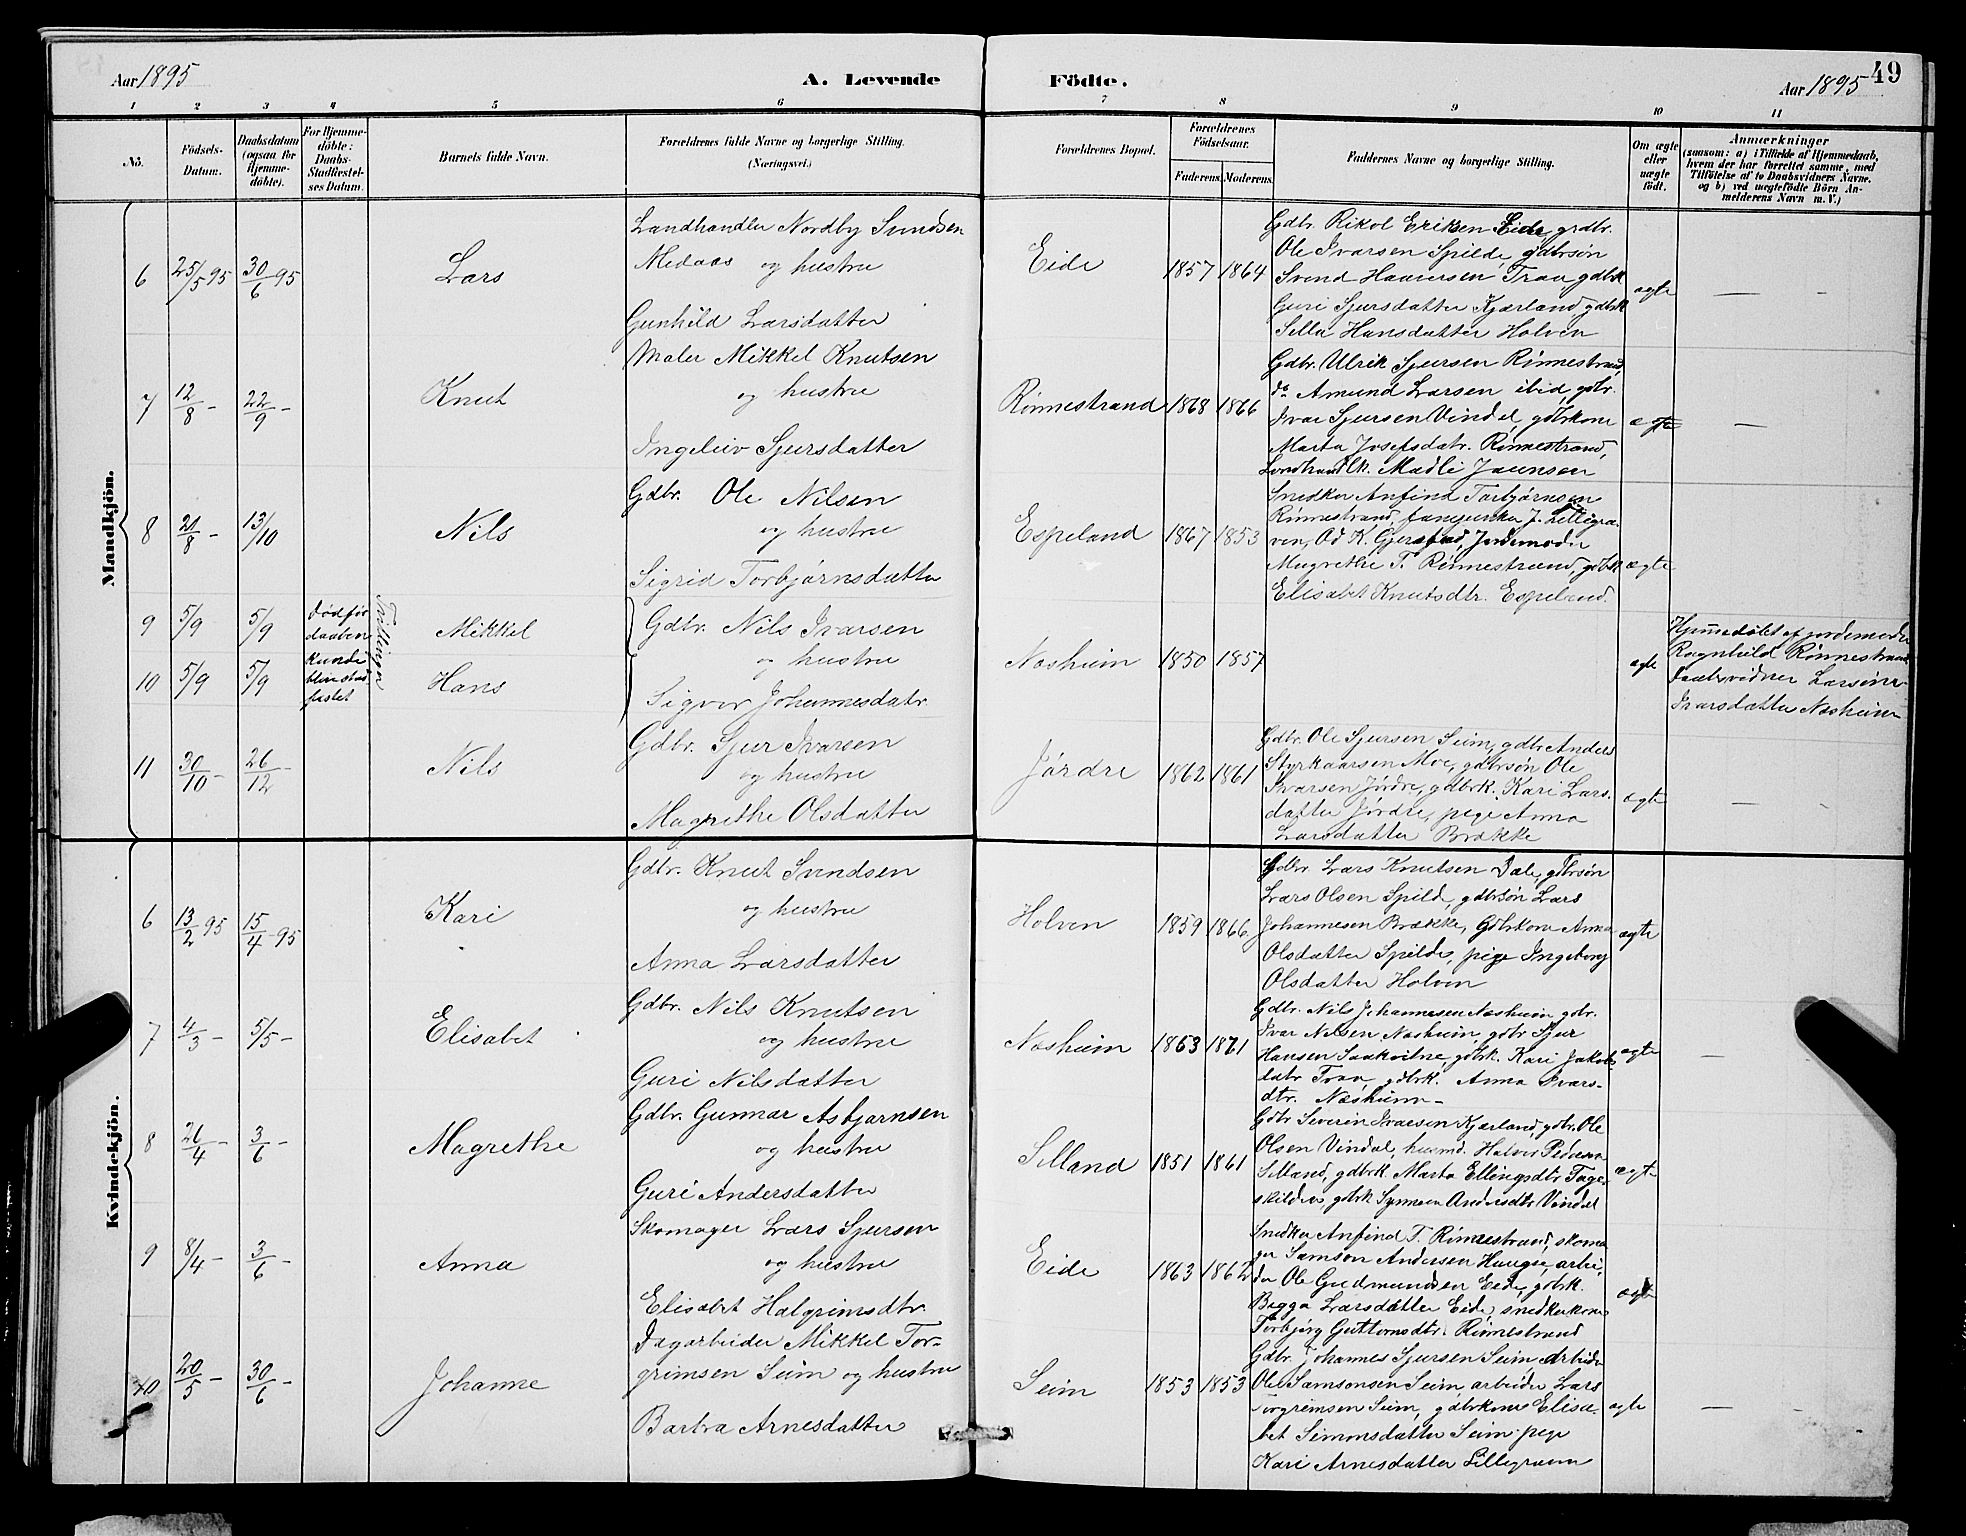 Aar 1895
A. Levende
Födte.
Aar 1895
49
1 2 3 4 5 6 7 8 9 10 11
Nô.
Födsels-Datum.
Daabsdatum (ogsaa for Hjemmedöbte).
For Hjemmedöbte: Daabs-Stadfæstelses Datum.
Barnets fulde Navn.
Forældrenes fulde Navne og borgerlige Stilling.
(Næringsvei.)
Forældrenes Bopæl.
Forældrenes Födselsaar.
Faderens. Moderens.
Faddernes Navne og borgerlige Stilling.
Om ægte eller uægte födt.
Anmærkninger
(saasom: a) i Tilfælde af Hjemmedaab, hvem der har forrettet samme, med Tilföielse af to Daabsvidners Navne, og b) ved uægtefödte Börn Anmelderens Navn m. V.)
Mandkjön.
6 25/5 95 30/6 95 Lars
Landhandler Nordby Svendsen
Medaas og hustru
Gunhild Larsdatter
Eide 1857 1864
Gdbr. Rikol Eriksen Eide, grdbr.
Ole Ivarsen Spilde, gdbrsøn
Svend Haaversen Traa, gdbrk
Guri Sjursdatter Kjærland, gdbrk
Silla Hansdatter Holven
ægte — -
7 12/8 - 22/9 - Knut
Maler Mikkel Knutsen
og hustru
Ingeliiv Sjursdatter
Rønnestrand 1868 1866
Gdbr. Ulrik Sjursen Rønnestrand,
do Amund Larsen ibid, gdbr.
Ivar Sjursen Vindal, gdbrkone
Marta Josefsdatr. Rønnestrand,
Landhandlk. Madli Jaunsen
ægte —
8 21/8 - 13/10 Nils
Gdbr. Ole Nilsen
og hustru
Sigrid Torbjørnsdatter
Espeland 1867 1853
Snedker Anfind Torbjørnsen
Rønnestrand, J. Lillegra-
ven, Od K. Gjerstad, Jordemoder
Magrethe T. Rønnestrand, gdbrk
Elisabet Knutsdtr. Espeland.
ægte
9 5/9 5/9 Mikkel
10 5/9 5/9 Hans
Død før
daaben
kunde
blive stad-
fæstet
Tvillinger
Gdbr. Nils Ivarsen
og hustru
Sigvor Johannesdatr.
Næsheim 1850 1857
ægte
Hjemmedøbt af jordemoder
Ragnhild Rønnestrand
Daabsvidner Larsine
Ivarsdatter Næsheim
11 30/10 - 26/12 - Nils
Gdbr. Sjur Ivarsen
og hustru
Magrethe Olsdatter
Jørdre 1862 1861
Gdbr. Ole Sjursen Seim, gdbr Anders
Styrkaarsen Moe, gdbrsøn Ole
Ivarsen Jørdre, gdbrk. Kari Lars-
datter Jørdre, pige Anna
Larsdatter Brække
ægte —
Kvindekjön.
6 13/2 95 15/4 95 Kari
Gdbr. Knut Svendsen
og hustru
Anna Larsdatter
Holven 1859 1866
Gdbr Lars Knutsen Dale, gdbrsøn
Lars Olsen Spilde, gdbrsøn Lars
Johannesen Brække, Gdbrkone Anna
Olsdatter Spilde, pige Ingeborg
Olsdatter Holven
ægte
7 4/3 - 5/5 - Elisabet
Gdbr. Nils Knutsen
og hustru
Guri Nilsdatter
Næsheim 1863 1871
Gdbr. Nils Johannesen Næsheim, gdbr.
Ivar Nilsen Næsheim, gdbr Sjur
Hansen Saakvitne, gdbrk. Kari Jakobs
datr Traa, gdbrk. Anna Ivars-
dtr. Næsheim -
ægte —
8 26/4 - 3/6 - Magrethe
Gdbr. Gunnar Asbjørnsen
og hustru
Guri Andersdatter
Silland 1851 1861
Gdbr Severin Ivarsen Kjærland, gdbr. Ole
Olsen Vindal, husmd. Halvor Pedersen
Silland, gdbrk Marta Ellingsdtr
gdbrk Synneva Andersdtr Vindal
ægte
9 8/4 - 3/6 - Anna
Skomager Lars Sjursen
og hustru
Elisabet Halgrimsdtr.
Eide 1863 1862
Snedker Anfind T. Rønnestrand, skoma
ger Samson Andersen Haugse, arbei-
der Ole Gudmundsen Eide, gdbrk.
Begga Larsdatter Eide, snedkerkone
Torbjørg Guttormsdtr. Rønnestrand
ægte
10 20/5 - 30/6 - Johanne
Dagarbeider Mikkel Tor-
grimsen Seim og hustru
Barbra Arnesdatter
Seim 1853 1853
Gdbr. Johannes Sjursen Seim, Arbeider
Ole Samsonsen Seim, arbeider Lars
Torgrimsen Seim, gdbrkone Elisa-
bet Simonsdatter Seim, pige
Kari Arnesdatter Lillegraven
ægte — -